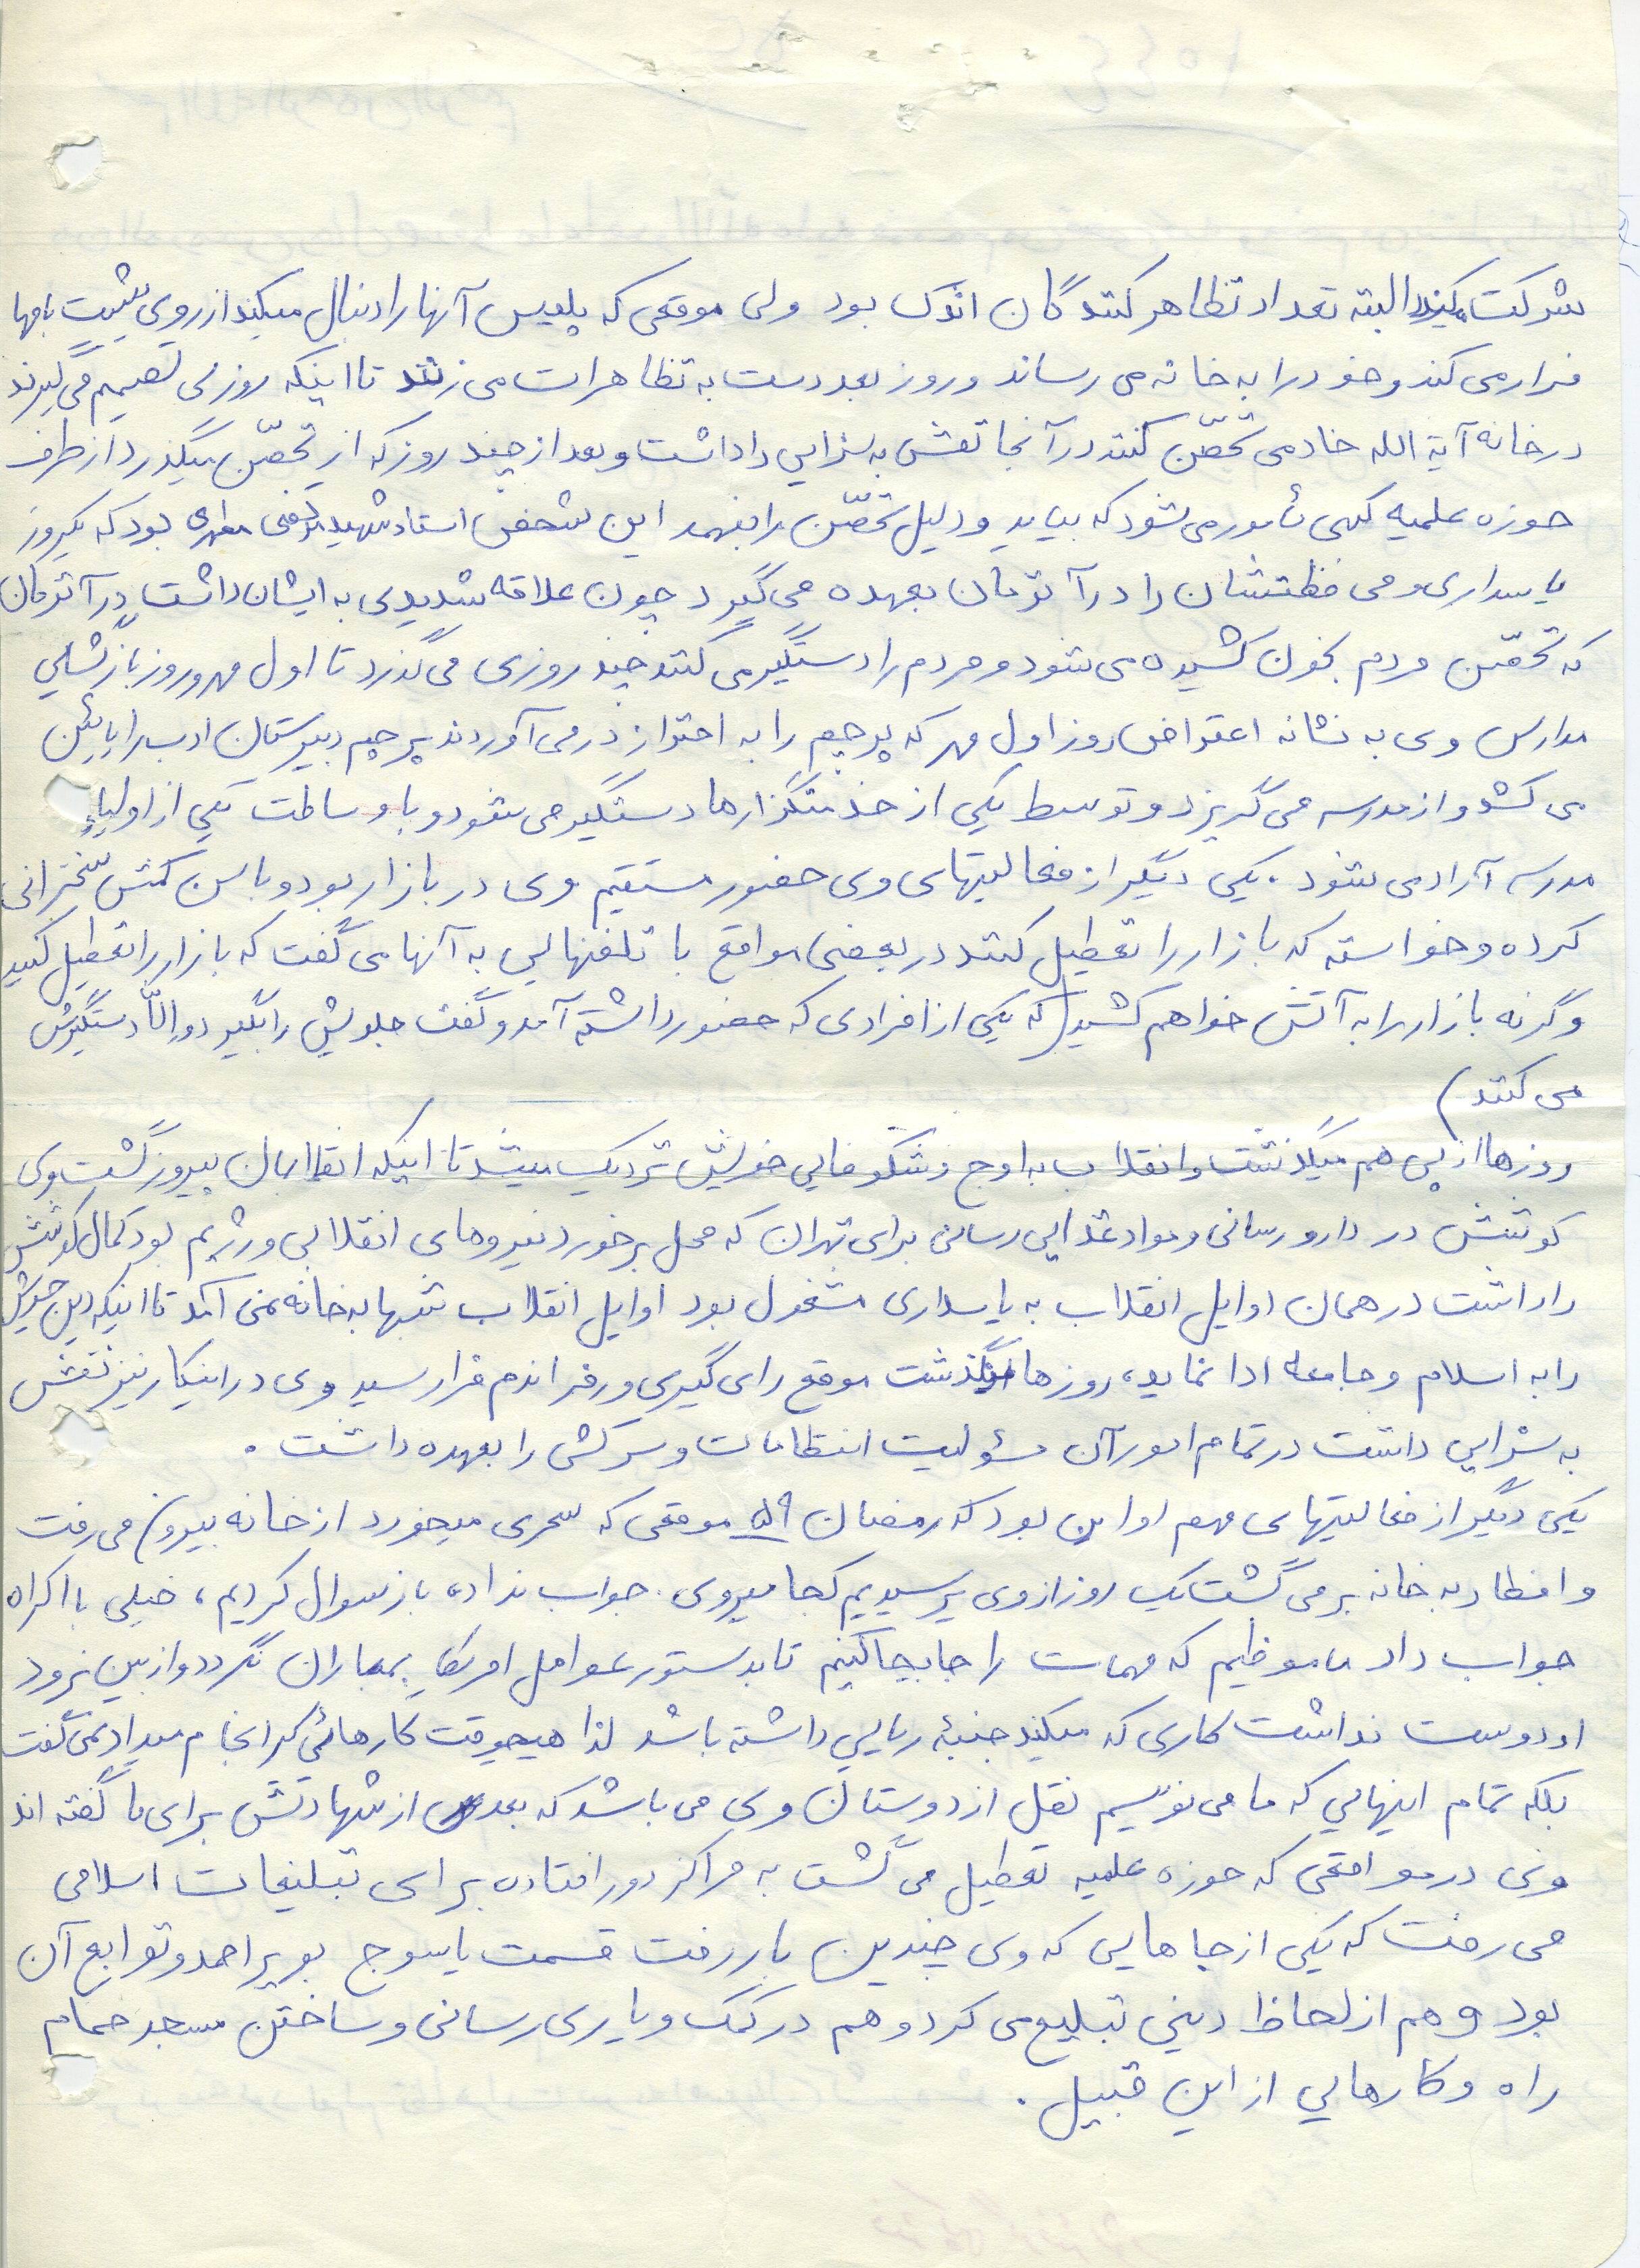 شرکت میکند البته تعداد تظاهر کنندگان اندک بود ولی موقعی که پلیس آنها را دنبال میکند از روی پشت بامها
فرار می کند و خود را به خانه می رساند و روز بعد دست به تظاهرات می زنند تا اینکه روزی تصمیم می گیرند
در خانه آیة الله خادمی تحصّن کنند در آنجا نقش به سزایی را داشت و بعد از چند روز که از تحصّن میگذرد از طرف
حوزه علمیه کسی مأمور می شود که بیاید و دلیل تحصّن را بفهمد این شخص استاد شهید مرتضی مطهری بود که یکروز
پاسداری و محافظتشان را در آنزمان بعهده می گیرد چون علاقه شدیدی به ایشان داشت در آنزمان
که تحصّن مردم بخون کشیده می شود و مردم را دستگیر می کنند چند روزی می گذرد تا اول مهر و روز بازگشایی
مدارس وی به نشانه اعتراض روز اول مهر که پرچم را به احتزاز در می آوردند پرچم دبیرستان ادب را پائین
می کشد و از مدرسه می گریزد و توسط یکی از خدمتگزارها دستگیر می شود و با وساطت یکی از اولیاء
مدرسه آزاد می شود. یکی دیگر از فعالیتهای وی حضور مستقیم وی در بازار بود و با سن کمش سخنرانی
کرده و خواسته که بازار را تعطیل کنند در بعضی مواقع با تلفنهایی به آنها می گفت که بازار را تعطیل کنید
وگرنه بازار را به آتش خواهم کشید (که یکی از افرادی که حضور داشته آمد و گفت جلویش را بگیرد والّا دستگیرش
می کنند)
روزها از پی هم میگذشت و انقلاب به اوج و شکوفایی خویش نزدیک میشد تا اینکه انقلابمان پیروز گشت وی
کوشش در دارو رسانی و مواد غذایی رسانی برای تهران که محل برخورد نیروهای انقلابی و رژیم بود کمال کوشش
را داشت در همان اوایل انقلاب به پاسداری مشغول بود اوایل انقلاب شبها به خانه نمی آمد تا اینکه دین خویش
را به اسلام و جامعه ادا نماید، روزها میگذشت موقع رای گیری و رفراندم فرا رسید وی در اینکار نیز نقش
به سزایی داشت در تمام امور آن مسؤلیت انتظامات و سرکشی را بعهده داشت.
یکی دیگر از فعالیتهای مهم او این بود که رمضان ۵۹ موقعی که سحری میخورد از خانه بیرون می رفت
و افطار به خانه بر می گشت یک روز از وی پرسیدیم کجا میروی. جواب نداد، باز سوال کردیم، خیلی با اکراه
جواب داد ما موظفیم که مهمات را جابجا کنیم تا بدستور عوامل امریکا بمباران نگردد و از بین نرود
او دوست نداشت کاری که میکند جنبهٔ ریایی داشته باشد لذا هیچوقت کارهائی که انجام میداد نمی گفت
بلکه تمام اینهایی که ما می نویسیم نقل از دوستان وی می باشد که بعد از شهادتش برای ما گفته اند
وی در مواقعی که حوزه علمیه تعطیل می گشت به مراکز دور افتاده برای تبلیغات اسلامی
می رفت که یکی از جاهایی که وی چندین بار رفت قسمت یاسوج بویر احمد و توابع آن
بود و هم از لحاظ دینی تبلیغ می کرد و هم در کمک و یاری رسانی و ساختن مسجد حمام
راه و کارهایی از این قبیل.